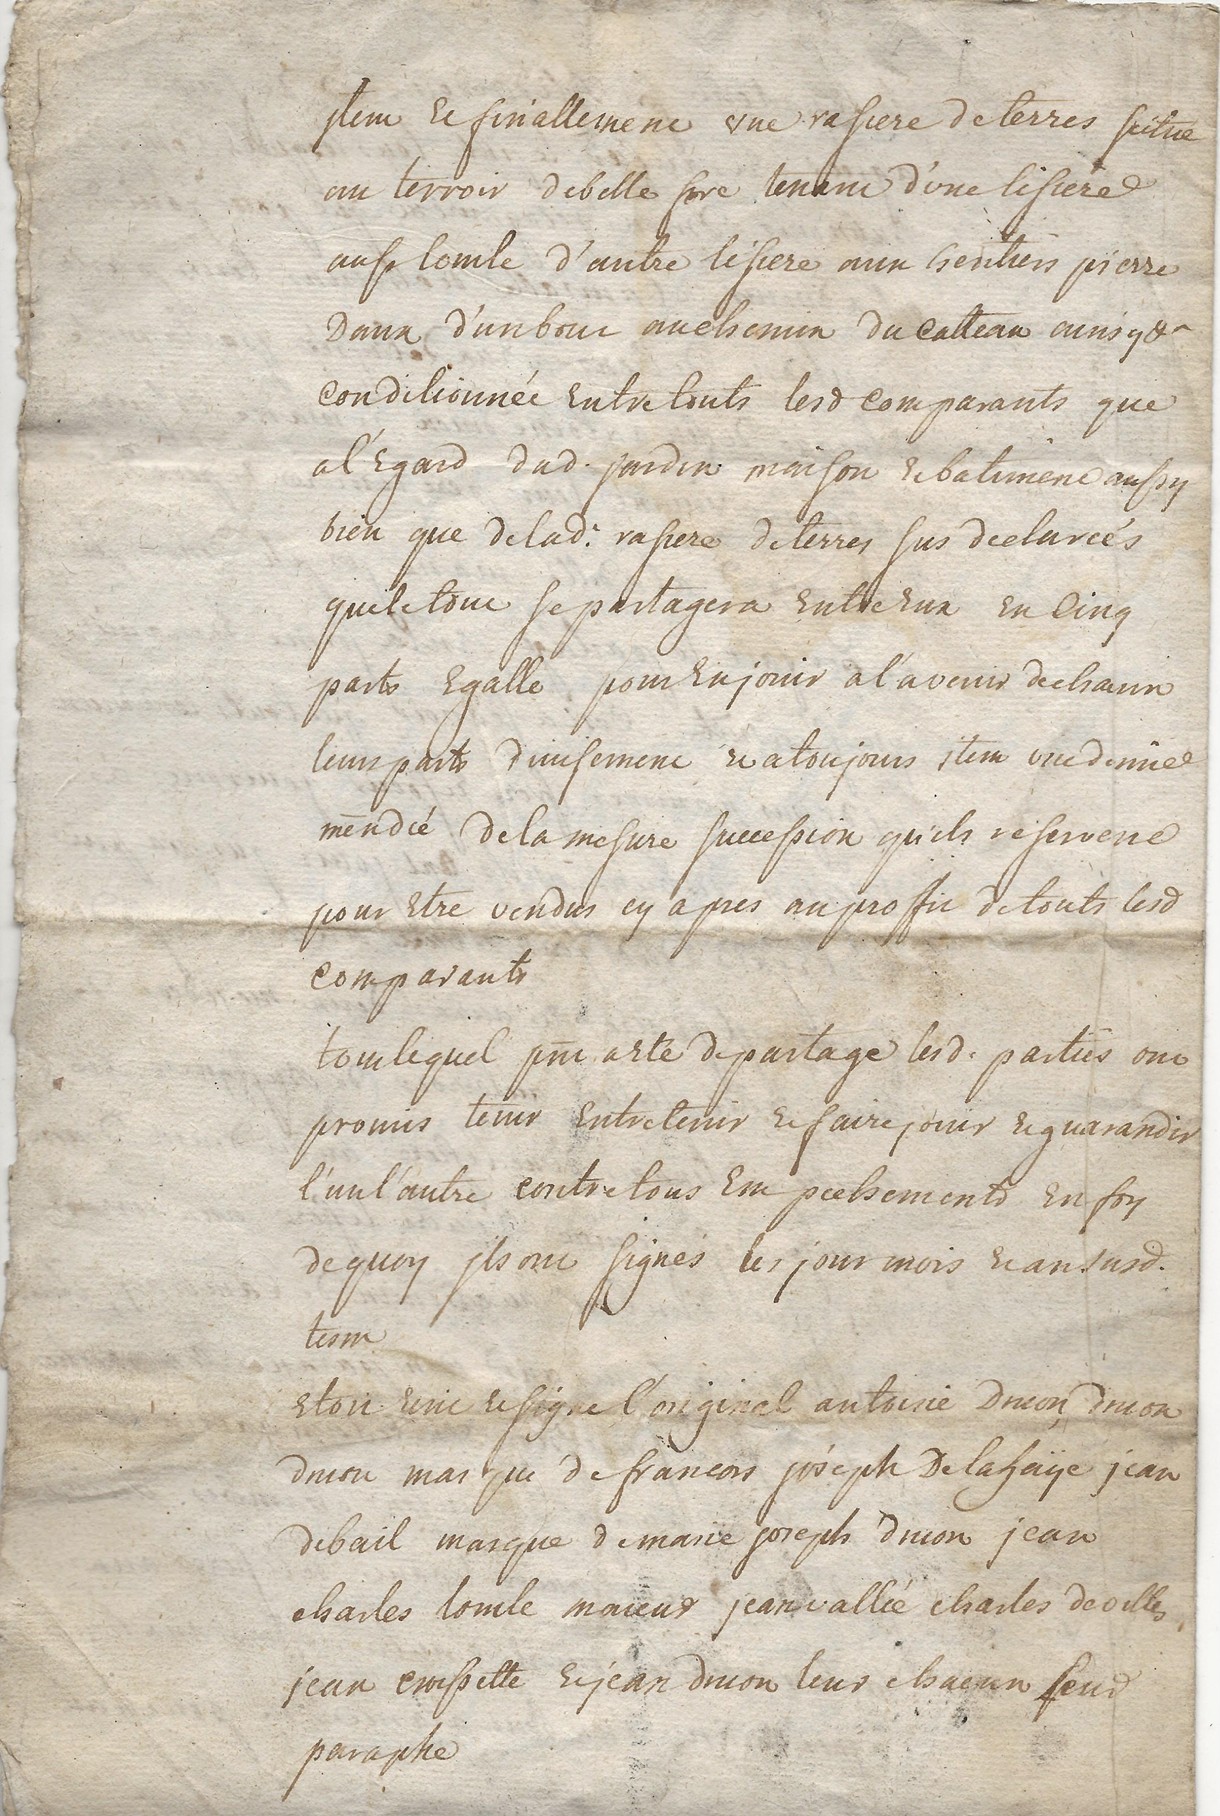 jtem et finallement vne rasiere de terres scitue
au terroir debelle fore tenant d'vne lisiere
aus lomle d'autre lisiere aux heritiers pierre
Daux d'un bout au chemin du Catteau ainsy &a
Conditionnée Entre touts lesd comparants que
a l'Egard dud. jardin maison et batiment aussy
bien que de lad.e rasiere de terres sus declarées
que le tout se partagera Entre Eux en Cinq
parts Egalle pour En jouir a l'avenir de chacun
leurs parts divisement et a toujours jtem vne demie
mendié de la mesure succession qu'ils reservent
pour Etre vendus cy apres au proffit de touts lesd
comparants
tout lequel pnt acte de partage lesd. parties ont
promis tenir Entretenir et faire jouir et guarandir
l'un l'autre contre tous Empechements En foy
de quoy jls ont signés les jour mois et an susd.
tesm
Etoit et signe l'original antoine Druon Druon
Druon marque de francois joseph Delahaije jean
debail marque de marie joseph Druon jean
charles lomle maieur jean vallée charles deville
jean croissette et jean druon leur chacun leur
paraphe